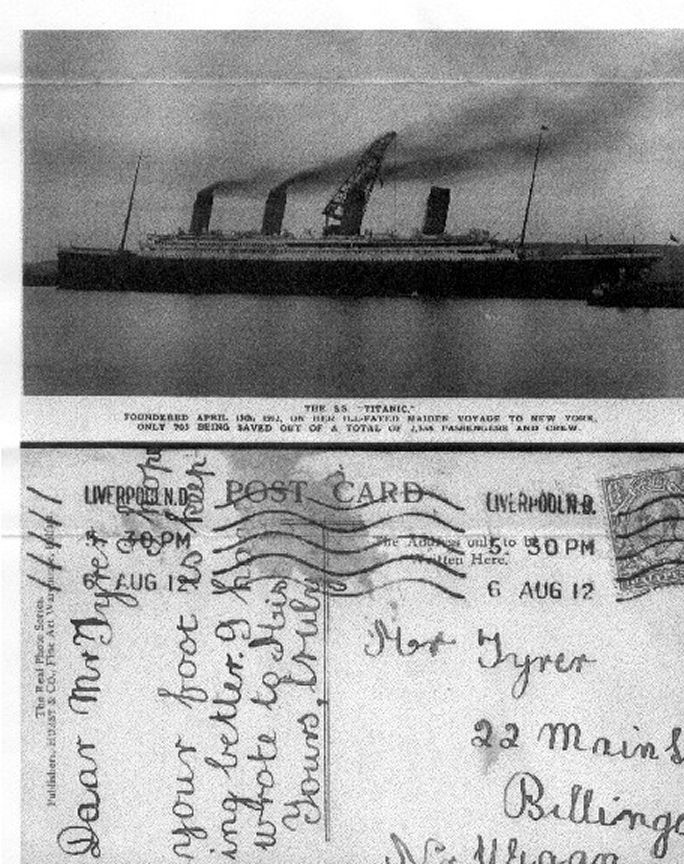 THE S.S. "TITANIC."
FOUNDERED APRIL 15th, 1912, ON HER ILL-FATED MAIDEN VOYAGE TO NEW YORK,
ONLY 703 BEING SAVED OUT OF A TOTAL OF PASSENGERS AND CREW.
POST CARD
The Address only to be
Written Here.
LIVERPOOL.N.D.
5. 30 PM
6 AUG 12
LIVERPOOL.N.D.
5. 30 PM
6 AUG 12
The Real Photo Series.
Publishers, HURST & CO., Fine Art
Dear Mr Tyrer I hope
your foot is keep
ing better. I
wrote to
Yours, truly
Mr Tyrer
22 Main S
Billing
Nr Wigan